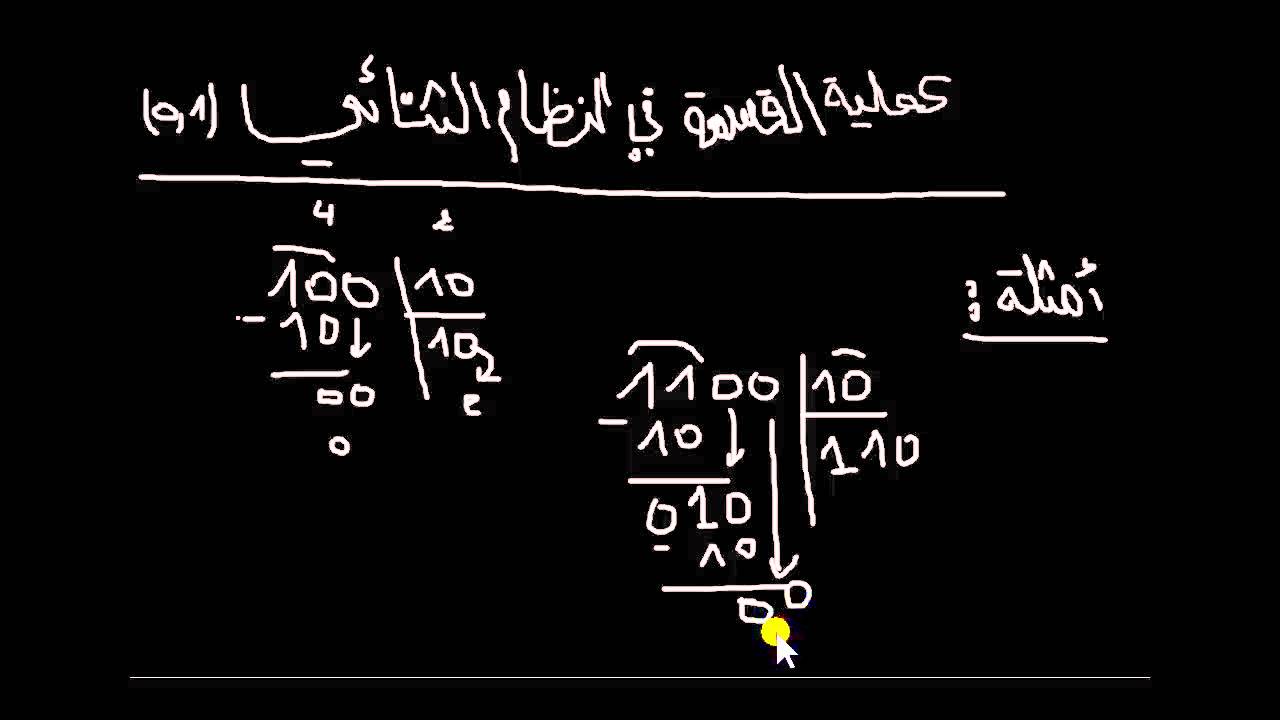 عملية القسمة في النظام الثنائي (0,1)
أمثلة :
4 2
100 10
- 10 10
00 2
0
1100 10
- 10 110
010
- 10
00